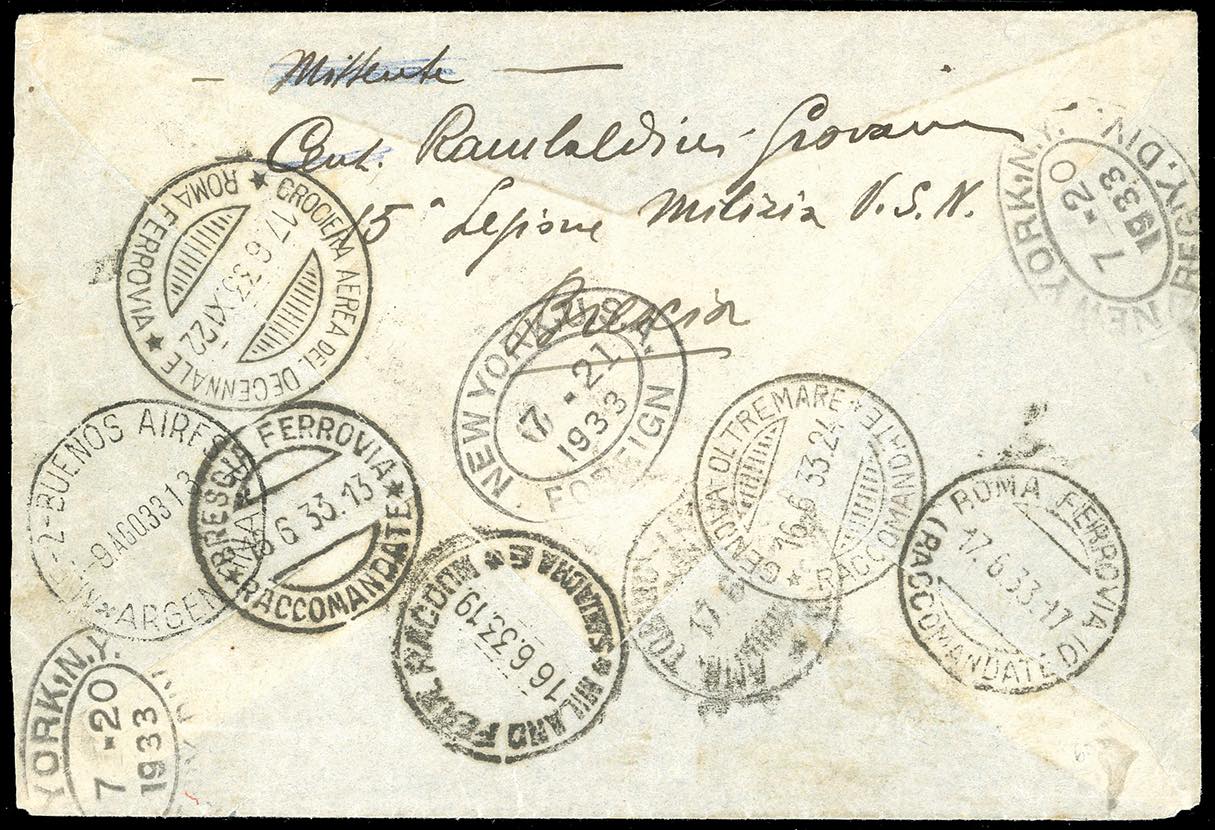 Mittente
Cent. Rambaldini Giovanni
15ª Legione Milizia V.S.N.
Brescia
NEW YORK, N.Y. REG'Y. DIV.
7-20
1933
CROCIERA AEREA DEL DECENNALE ★ VIA ★ ROMA FERROVIA ★
17.6.33.XI 22
NEW YORK, U.S.A. FOREIGN
7-21
1933
2-BUENOS AIRES ARGEN
-9 AGO.33 13
BRESCIA FERROVIA
6.33.13
★ RACCOMANDATE ★
GENOVA OLTREMARE
16.6.33.24
★ RACCOMANDATE A
ROMA FERROVIA
17.6.33-17
(RACCOMANDATE DI
MILANO FERR. RACCOM
16.6.33.19
17 6
YORK, N.Y.
7-20
1933